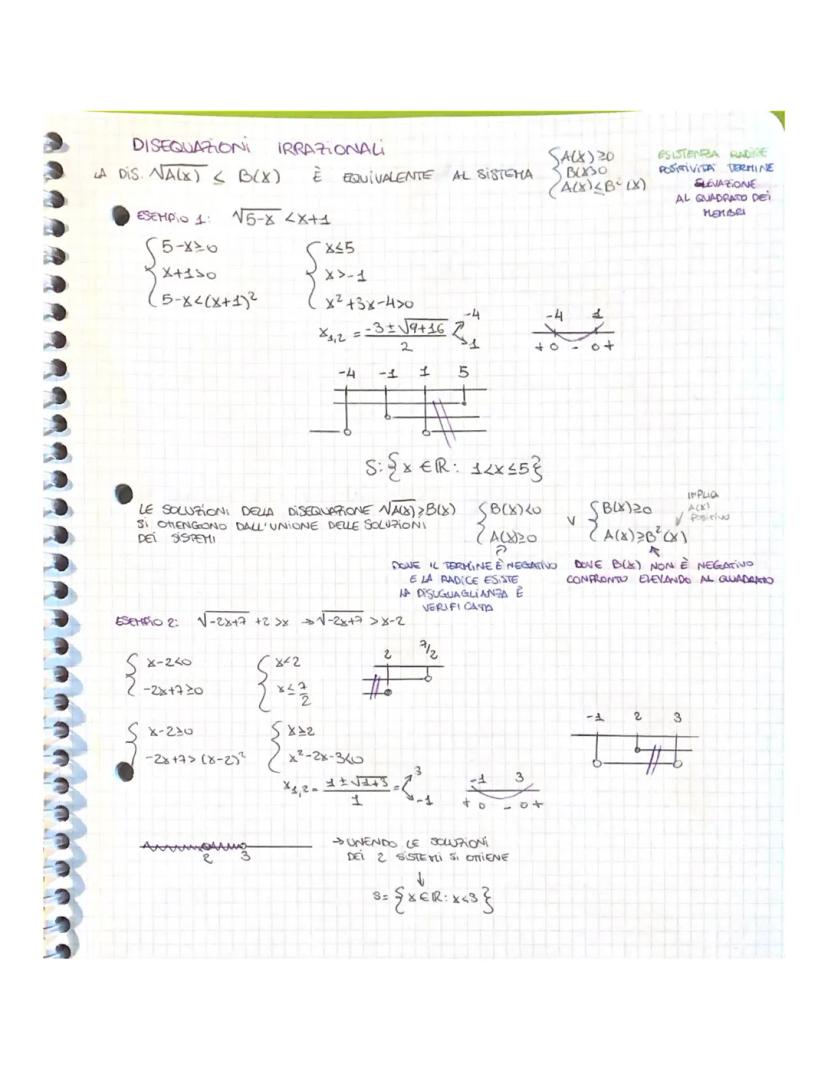 DISEQUAZIONI IRRAZIONALI
LA DIS. √A(X) ≤ B(X) È EQUIVALENTE AL SISTEMA { A(X)≥0
B(X)≥0
A(X)≤B²(X)
ESISTENZA RADICE
POSITIVITÀ TERMINE
ELEVAZIONE
AL QUADRATO DEI
MEMBRI
ESEMPIO 1: √5-x < x+1
{ 5-x≥0
x+1>0
5-x<(x+1)²
{ x≤5
x>-1
x²+3x-4>0
x1,2 = -3±√9+16 / 2 -4 1
-4 1
+ 0 - 0 +
-4 -1 1 5
S: {x ∈ ℝ: 1<x≤5}
LE SOLUZIONI DELLA DISEQUAZIONE √A(X)≥B(X)
SI OTTENGONO DALL'UNIONE DELLE SOLUZIONI
DEI SISTEMI
{ B(X)<0
A(X)≥0
V
{ B(X)≥0
A(X)≥B²(X)
IMPLICA
A(X)
POSITIVO
DOVE IL TERMINE È NEGATIVO
E LA RADICE ESISTE
LA DISUGUAGLIANZA È
VERIFICATA
DOVE B(X) NON È NEGATIVO
CONFRONTO ELEVANDO AL QUADRATO
ESEMPIO 2: √-2x+7 +2 >x → √-2x+7 > x-2
{ x-2<0
-2x+7≥0
{ x<2
x≤ 7/2
2 7/2
{ x-2≥0
-2x+7> (x-2)²
{ x≥2
x²-2x-3<0
x1,2 = 1±√1+3 / 1 = 3 -1
-1 3
+ 0 - 0 +
-1 2 3
2 3
→ UNENDO LE SOLUZIONI
DEI 2 SISTEMI SI OTTIENE
↓
S= {x∈ℝ: x<3}